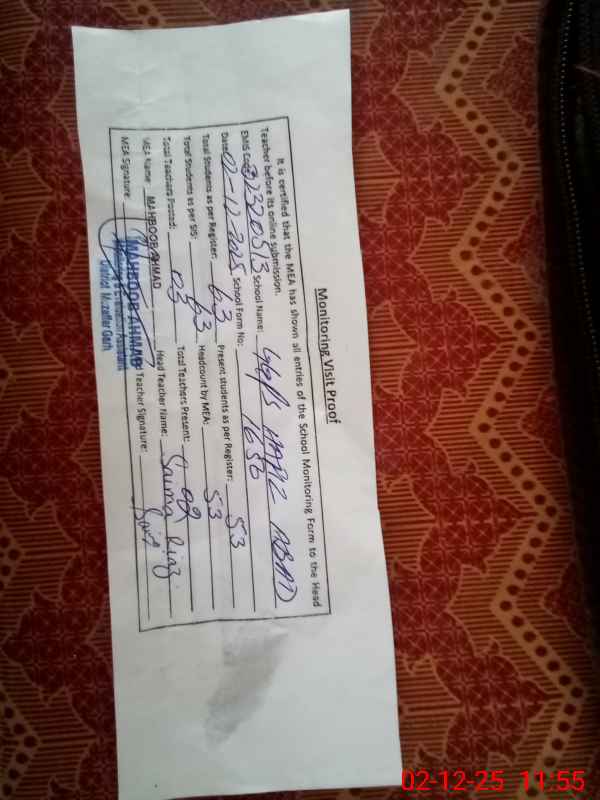 Monitoring Visit Proof
It is certified that the MEA has shown all entries of the School Monitoring Form to the Head
Teacher before its online submission.
EMIS Code: 32320513 School Name: ABAD
Date: 02-12-2025 School Form No: 1656
Total Students as per Register: 63 Present students as per Register: 53
Total Students as per SIS: 63 Headcount by MEA: 53
Total Teachers Posted: 03 Total Teachers Present: 02
MEA Name: MAHBOOB AHMAD Head Teacher Name: Riaz
MEA Signature: Teacher Signature:
MAHBOOB AHMAD
Monitoring & Evaluation Assistant
District Muzaffar Garh
02-12-25 11:55